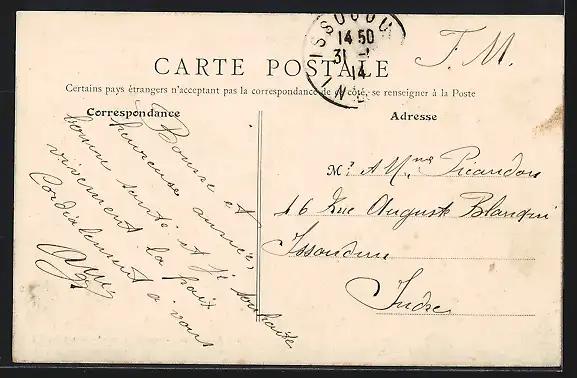 ISSOUDUN
14 50
31 -1
14
F. M.
CARTE POSTALE
Certains pays étrangers n'acceptant pas la correspondance de ce côté, se renseigner à la Poste
Correspondance
Bonne et
heureuse année,
bonne santé et je souhaite
vivement la paix
Cordialement à vous
Adresse
Mr et Mme Picandon
16 Rue Auguste Blanqui
Issoudun
Indre